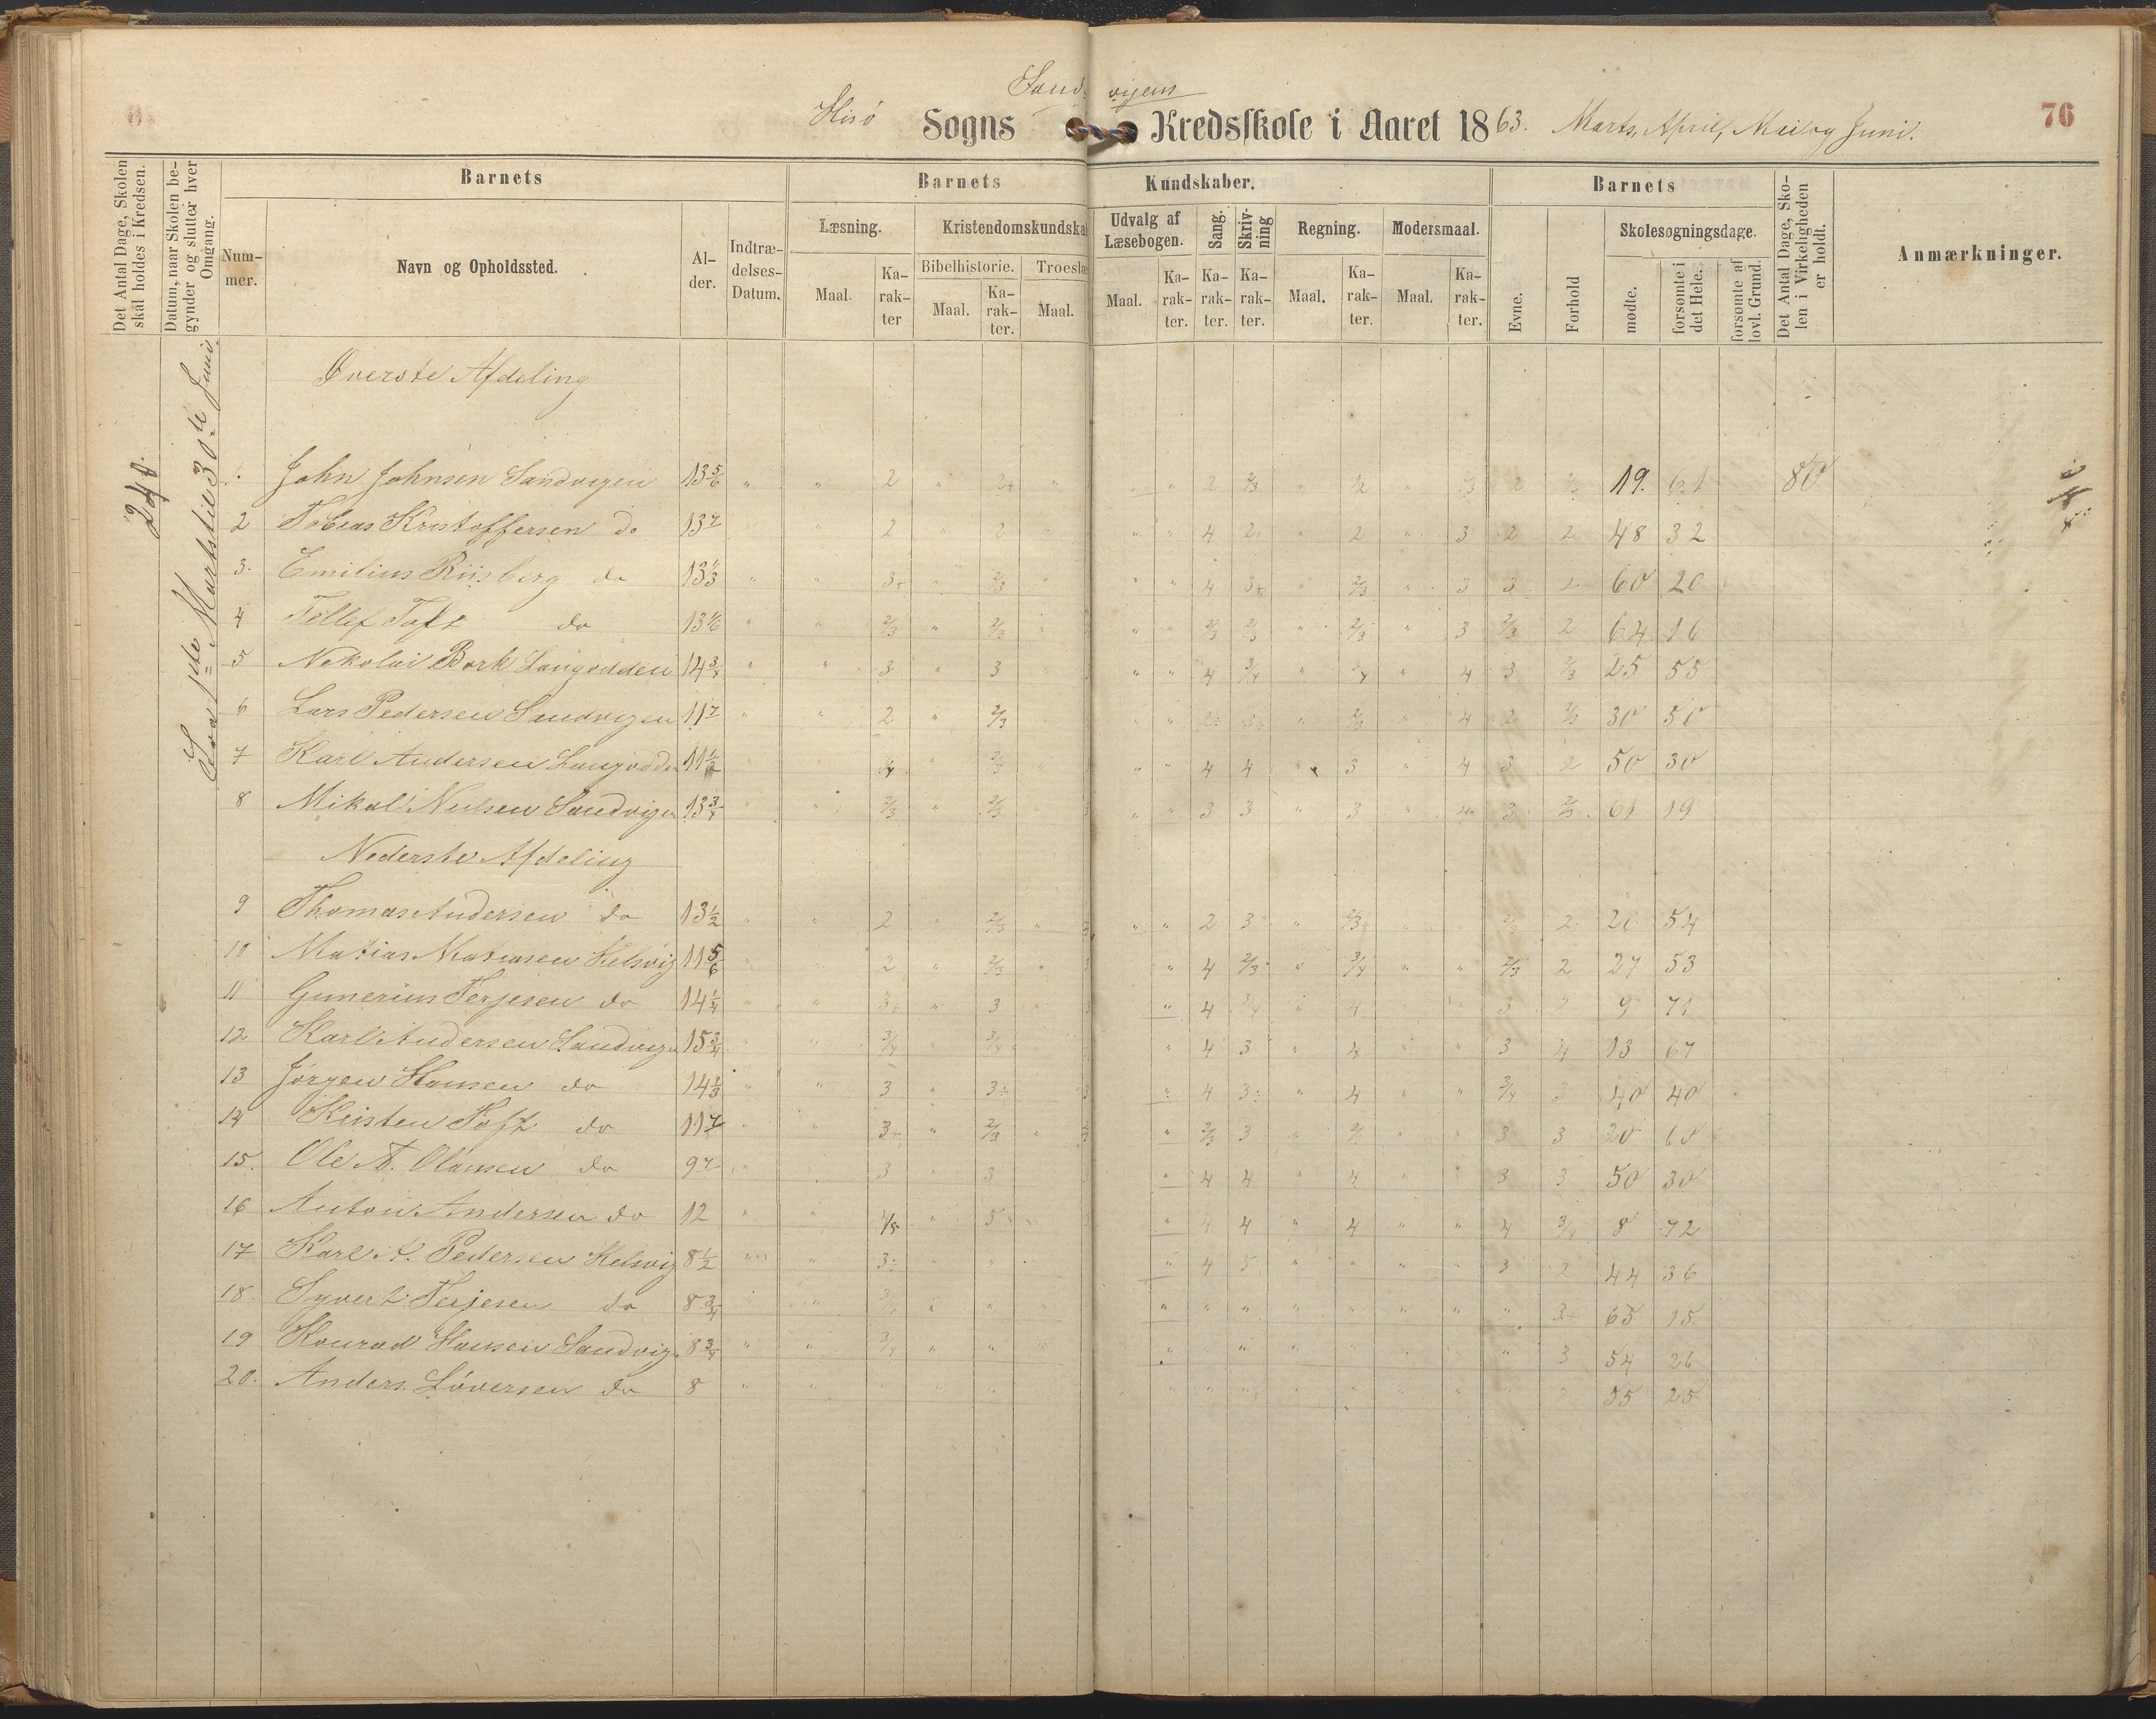 Sand- vigens
Hisö Sogns Kredsskole i Aaret 1863. Marts, April, Mai og Juni. 76
Det Antal Dage, Skolen skal holdes i Kredsen.
Datum, naar Skolen begynder og slutter hver Omgang.
Barnets Barnets Kundskaber. Barnets
Nummer. Navn og Opholdssted. Alder. Indtrædelses-Datum.
Læsning. Kristendomskundska
Maal. Karakter
Bibelhistorie. Maal. Karakter. Troeslæ Maal.
Udvalg af Læsebogen. Maal. Karakter.
Sang. Karakter. Skrivning Karakter.
Regning. Maal. Karakter. Modersmaal. Maal. Karakter.
Evne. Forhold Skolesøgningsdage. mødte. forsømte i det Hele. forsømte af lovl. Grund.
Det Antal Dage, Skolen i Virkeligheden er holdt.
Anmærkninger.
240.
Fra 1ste Marts til 30te Juni
Øverste Afdeling
1. John Johnsen Sandvigen 13 5/6 2 19. 61 80
2 Tobias Kristoffersen do 2 2 4 2 2 3 2 2 48 32
3. Emilius Riisberg do 13 1/3 3+ 2/3 4 3+ 2/3 3 3 2 60 20
4 Tellef Toft do 13 1/6 2/3 2/3 2/3 2/3 2/3 3 2/3 2 64 16
5 Nekolai Bork Langodden 14 3/4 3 3 4 3/4 3/4 4 3 2/3 25 55
6 Lars Pedersen Sandvigen 2 2/3 2/3 4 2 2/3 30 50
7 Karl Andersen Langodden 11 1/2 4 4 3 4 3 2 50 30
8 Mikal Nielsen Sandvigen 13 3/4 2/3 2/3 3 3 3 4 3 2/3 61 19
Nederste Afdeling
9 Thomas Andersen do 13 1/2 2 2/3 2 3 2 54
10 Matias Matiasen Helsvig 11 5/6 2 2/3 4 2/3 3/4 2/3 2 27 53
11 Gunerius Terjesen do 14 1/4 3 4 3/4 4 3 2 9 71
12 Karl Andersen Sandvigen 15 3/4 3/4 3/4 4 3 4 3 4 13 67
13 Jørgen Hansen do 14 1/3 3 3÷ 4 3÷ 4 3/4 3 40 40
14 Kristen Toft do 3+ 2/3 2/3 3 3 3 20 60
15. Ole A. Olausen do 3 3 4 4 4 3 3 50 30
16 Anton Andersen do 12 4/5 5 4 4 4 4 3/4 8 72
17 Karl A. Pedersen Helsvig 8 1/2 3÷ 4 5 3 2 44 36
18. Syvert Terjesen do 8 3/4 65 15
19 Konrad Hansen Sandvig. 8 3/4 3/4 3 54 26
20. Anders Løversen do 8 55 25